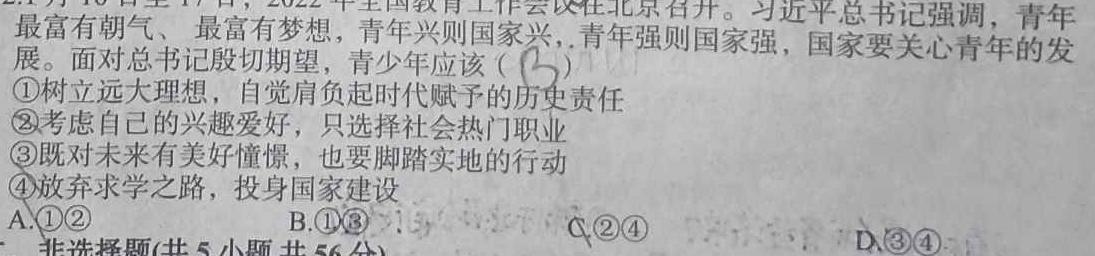 2.1月16日至17日，2022年全国教育工作会议在北京召开。习近平总书记强调，青年
最富有朝气、 最富有梦想，青年兴则国家兴，青年强则国家强，国家要关心青年的发
展。面对总书记殷切期望，青少年应该（ B ）
①树立远大理想，自觉肩负起时代赋予的历史责任
②考虑自己的兴趣爱好，只选择社会热门职业
③既对未来有美好憧憬，也要脚踏实地的行动
④放弃求学之路，投身国家建设
A.①② B.①③ C.②④ D.③④
非选择题(共5小题 共56分)